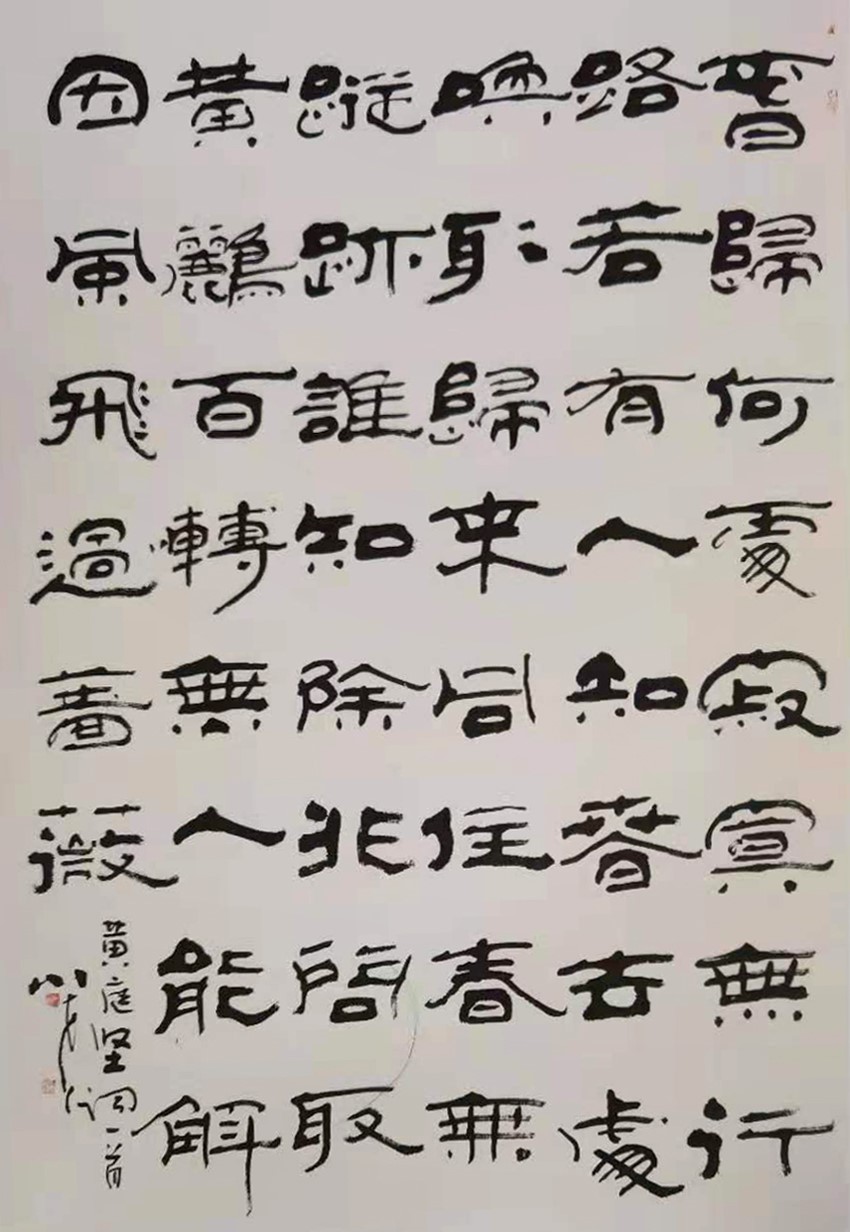 春歸何處寂寞無行
路若有人知春去處
喚取歸來同住春無
蹤跡誰知除非問取
黃鸝百囀無人能解
因風飛過薔薇
黄庭坚词一首